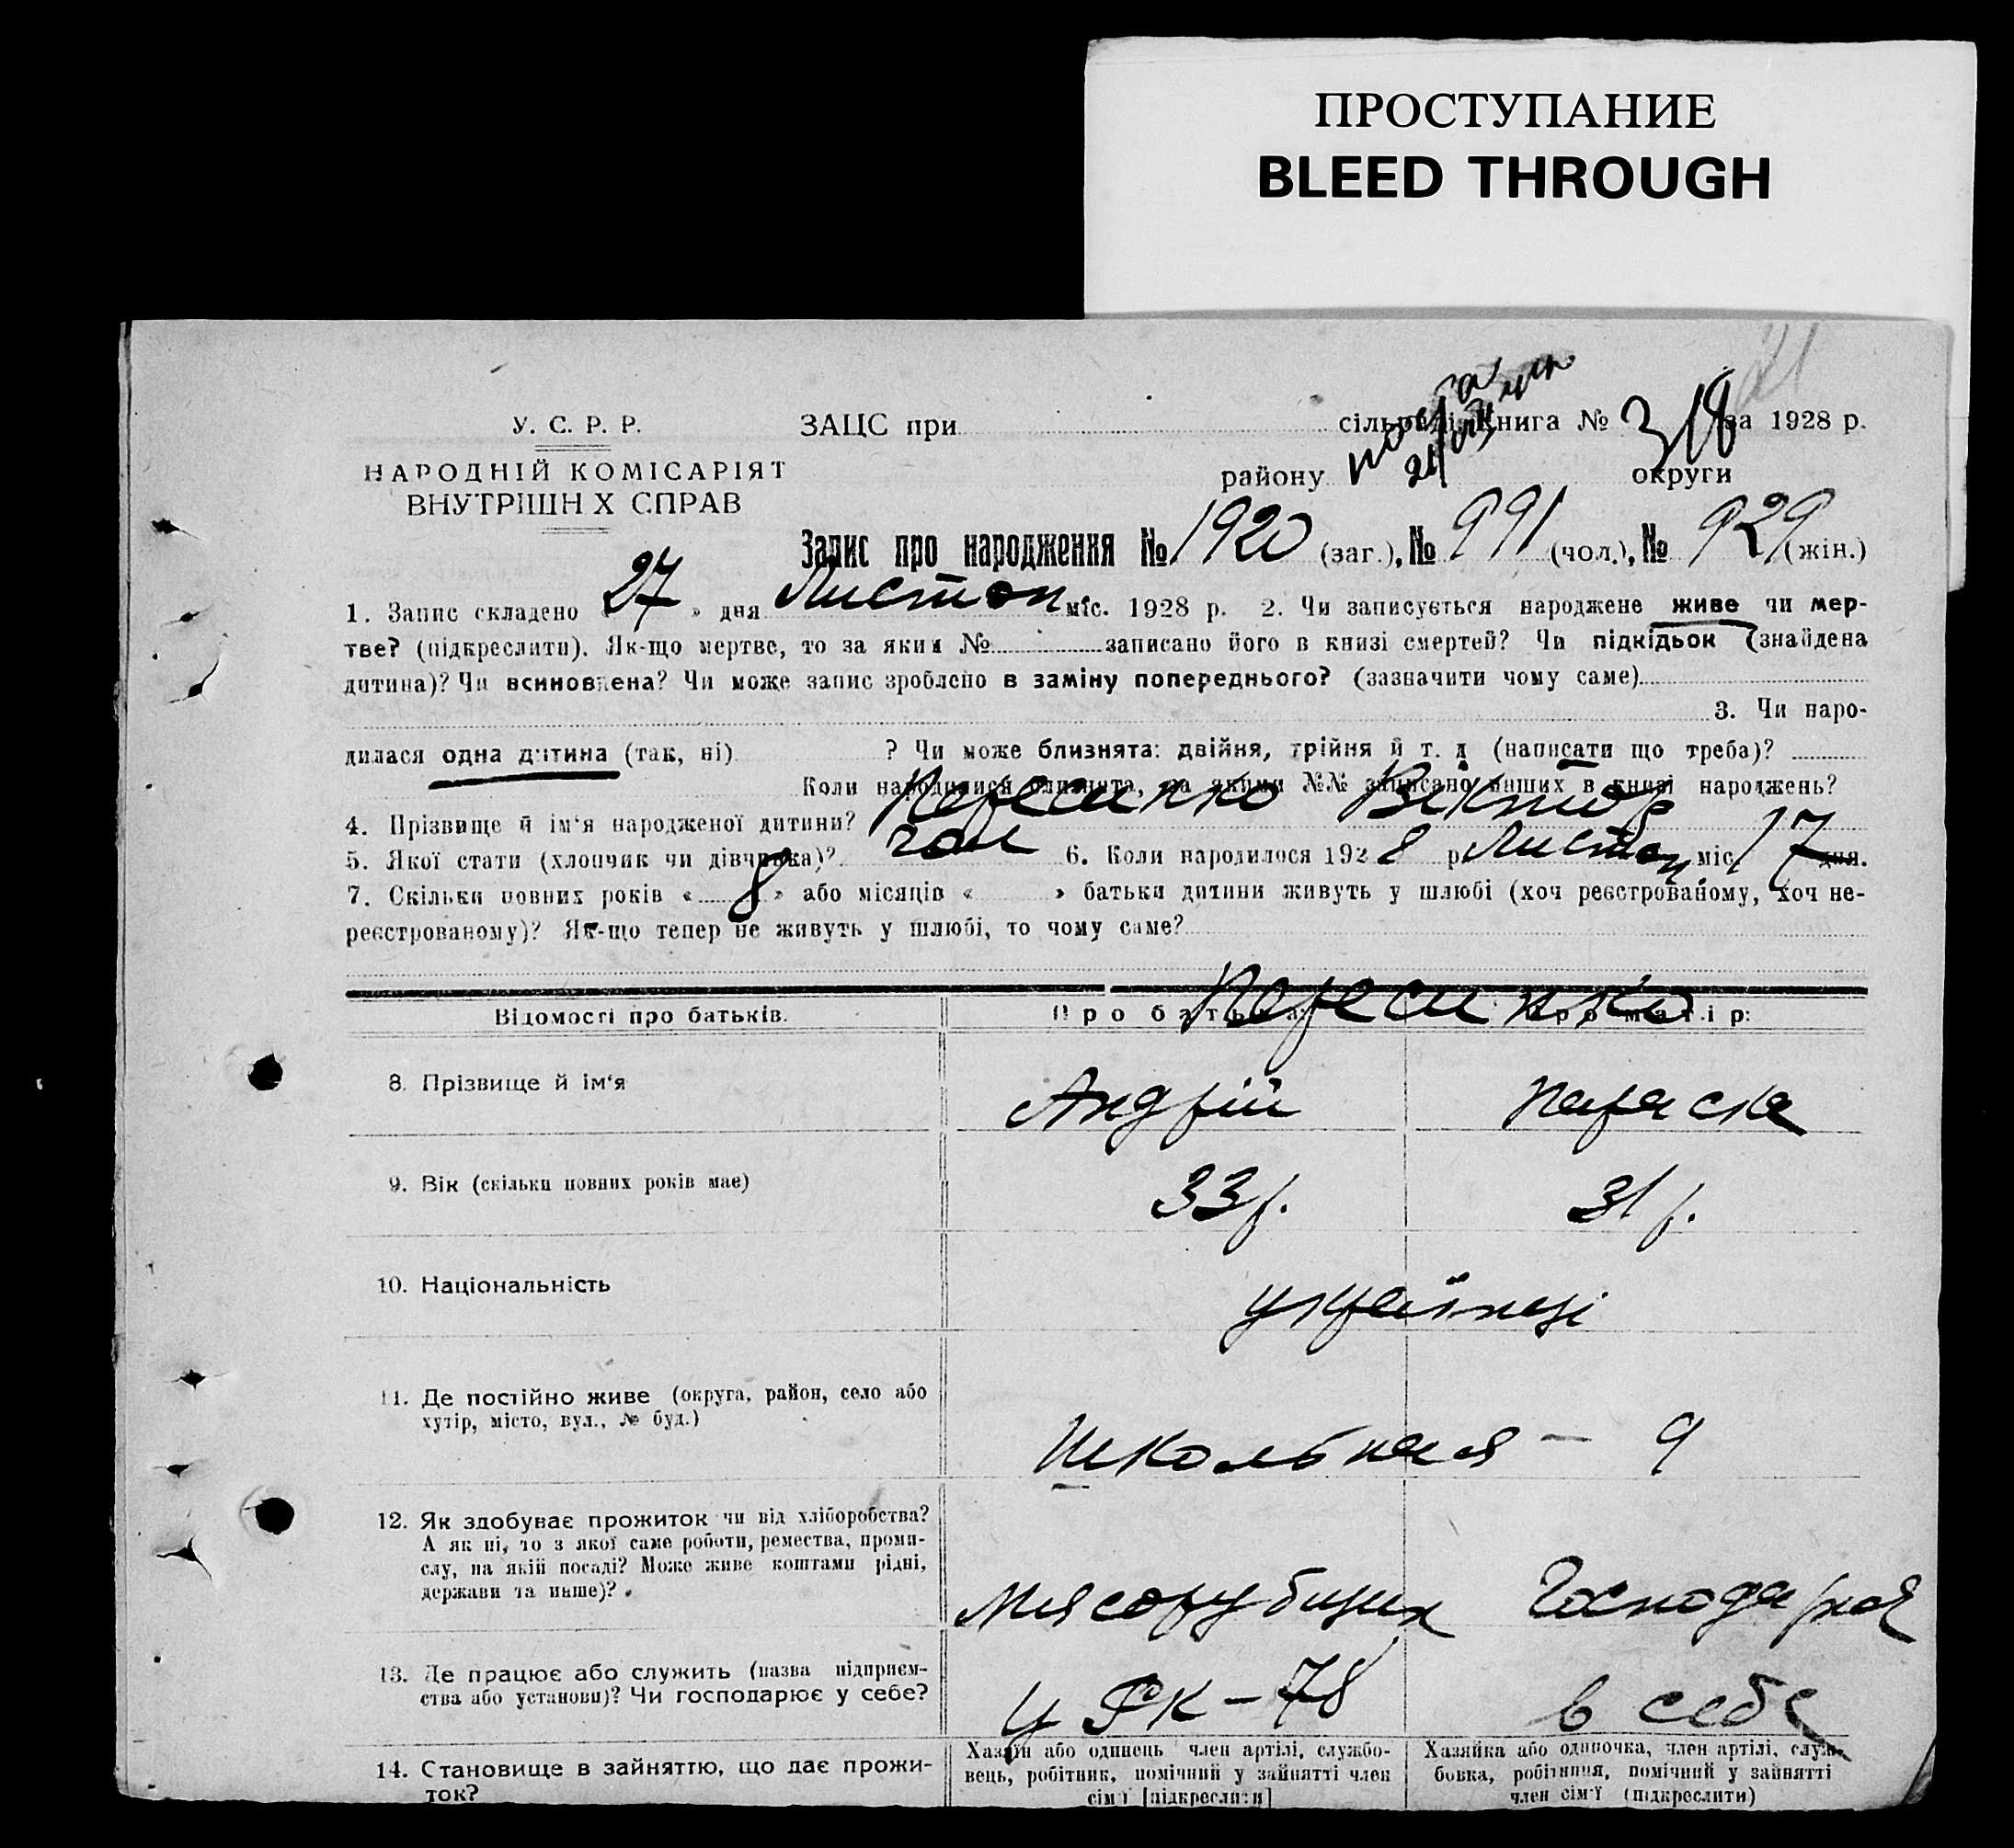 ПРОСТУПАНИЕ
BLEED THROUGH
У. С. Р. Р.
НАРОДНІЙ КОМІСАРІЯТ
ВНУТРІШН Х СПРАВ
ЗАЦС при сільраді Книга № 318 за 1928 р.
району округи
Запис про народження № 1920 (заг.), № 991 (чол.), № 929 (жін.)
1. Запис складено « 27 » дня Листоп міс. 1928 р. 2. Чи записується народжене живе чи мер-
тве? (підкреслити). Як-що мертве, то за яким № записано його в книзі смертей? Чи підкідьок (знайдена
дитина)? Чи всиновлена? Чи може запис зроблено в заміну попереднього? (зазначити чому саме)
3. Чи наро-
дилася одна дитина (так, ні) ? Чи може близнята: двійня, трійня й т. д (написати що треба)?
Коли народилися близнята, за якими №№ записано инших в книзі народжень?
4. Прізвище й ім'я народженої дитини? Пересипко Віктор
5. Якої стати (хлопчик чи дівчинка)? чол 6. Коли народилося 1928 р Листоп міс 17 дня.
7. Скільки повних років « 8 » або місяців « » батьки дитини живуть у шлюбі (хоч реєстрованому, хоч не-
реєстрованому)? Як-що тепер не живуть у шлюбі, то чому саме?
Відомості про батьків. Про батька: Про матір:
Пересипко
8. Прізвище й ім'я Андрій Параска
9. Вік (скільки повних років має) 33 р. 31 р.
10. Національність українці
11. Де постійно живе (округа, район, село або
хутір, місто, вул., № буд.)
Школьная – 9
12. Як здобуває прожиток чи від хліборобства?
А як ні, то з якої саме роботи, ремества, проми-
слу, на якій посаді? Може живе коштами рідні,
держави та инше)?
Мясорубщик Господарка
13. Де працює або служить (назва підприєм-
ства або установи)? Чи господарює у себе?
у РК – 78 в себе
14. Становище в зайняттю, що дає прожи-
ток?
Хазяїн або одинець член артілі, службо-
вець, робітник, помічний у зайнятті член
сім'ї [підкреслити]
Хазяйка або одиночка, член артілі, служ-
бовка, робітниця, помічний у зайнятті
член сім'ї (підкреслити)